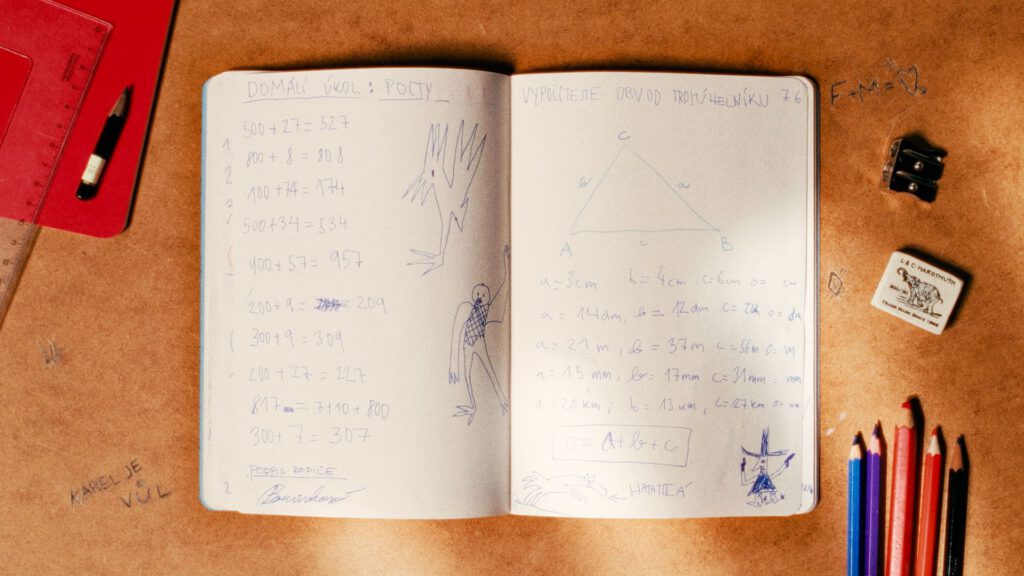 DOMÁCÍ ÚKOL: POČTY
500+27=527
800+8=808
100+74=174
500+34=534
900+57=957
200+9= =209
300+9=309
200+27=227
817 =7+10+800
300+7=307
PODPIS RODIČE
VYPOČÍTEJTE OBVOD TROJÚHELNÍKU 76
C
b a
A c B
a=3cm b=4cm c=6cm o= cm
a=14dm, b=12dm c= o= dm
a=21m, b=37m c=56m o= m
a=15mm, b=17mm c=31mm = mm
a=20km; b=13km, c=27km o= km
o=a+b+c
F+M=
L&C HARDTMUTH
KAREL JE
VŮL